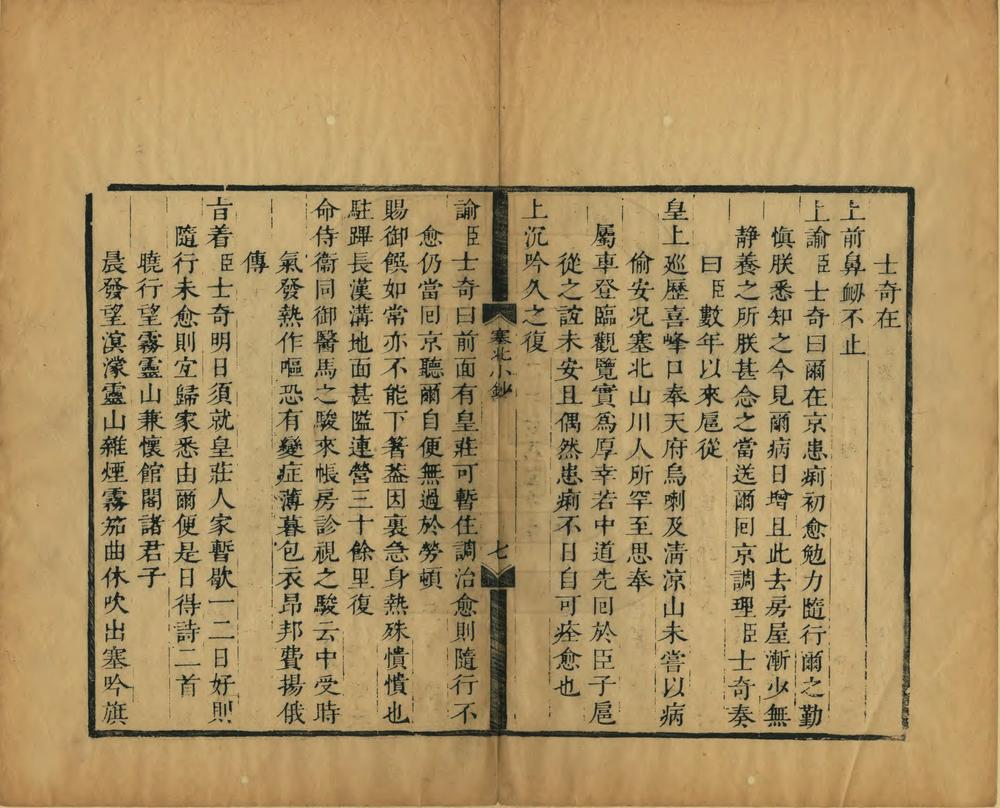 士奇在
上前鼻衂不止
上諭臣士奇曰爾在京患痢初愈勉力隨行爾之勤
慎朕悉知之今見爾病日增且此去房屋漸少無
静養之所朕甚念之當送爾囘京調理臣士奇奏
曰臣數年以來扈從
皇上廵歷喜峰口奉天府烏喇及清凉山未嘗以病
偷安况塞北山川人所罕至思奉
屬車登臨觀覽實爲厚幸若中道先囘於臣子扈
從之誼未安且偶然患痢不日自可痊愈也
上沉吟久之復
塞北小鈔
七
諭臣士奇曰前面有皇莊可暫住調治愈則隨行不
愈仍當囘京聽爾自便無過於勞頓
賜御饌如常亦不能下箸葢因裏急身熱殊憒憒也
駐蹕長漢溝地面甚隘連營三十餘里復
命侍衞同御醫馬之駿來帳房診視之駿云中受時
氣發熱作嘔恐有變症薄暮包衣昂邦費揚俄
傳
旨着臣士奇明日須就皇莊人家暫歇一二日好則
隨行未愈則宜歸家悉由爾便是日得詩二首
曉行望霧靈山兼懷館閣諸君子
晨發望溟濛靈山雜煙霧笳曲休吹出塞吟旗